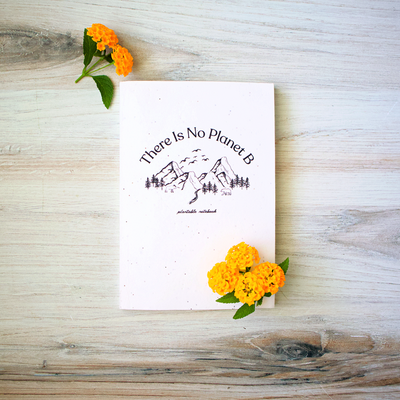 There Is No Planet B
plantable notebook